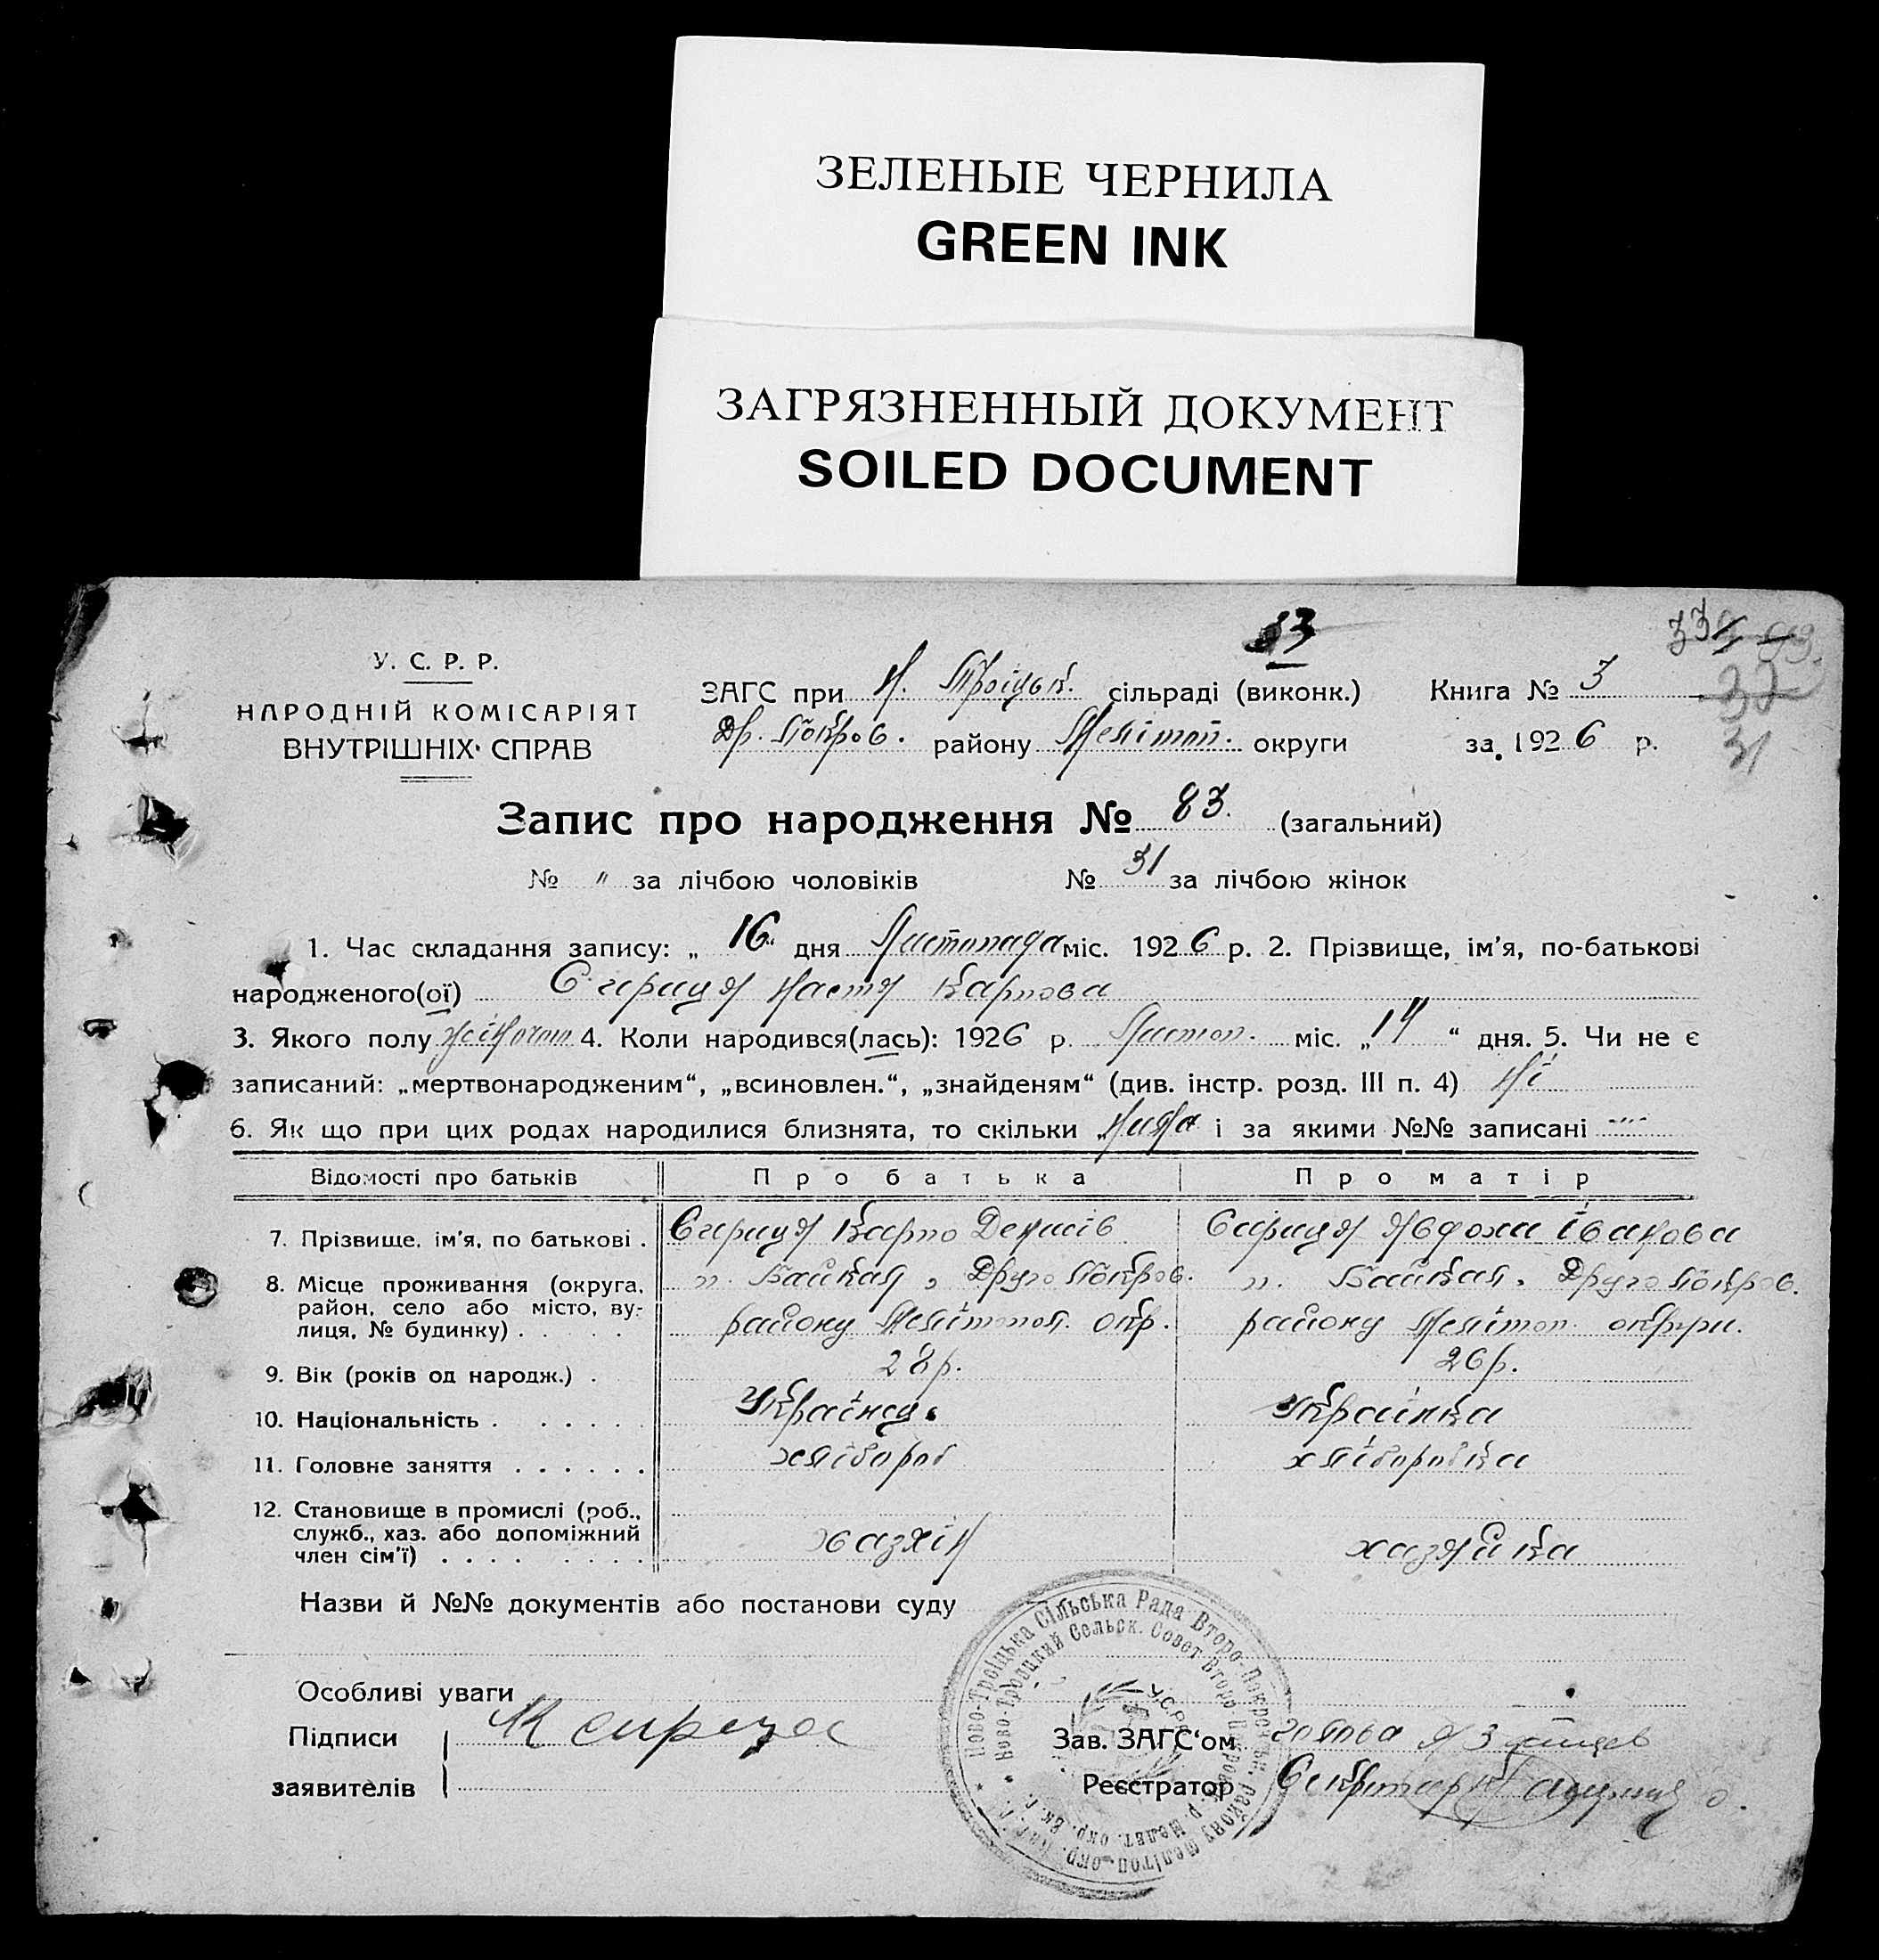 ЗЕЛЕНЫЕ ЧЕРНИЛА
GREEN INK
ЗАГРЯЗНЕННЫЙ ДОКУМЕНТ
SOILED DOCUMENT
33
33
У. С. Р. Р.
НАРОДНІЙ КОМІСАРІЯТ
ВНУТРІШНІХ СПРАВ
ЗАГС при Н. Троіцьк. сільраді (виконк.) Книга № 3
32
Др. Покров. району Мелітоп. округи за 1926 р.
31
Запис про народження № 83. (загальний)
№ " за лічбою чоловіків № 31 за лічбою жінок
1. Час складання запису: „ 16 " дня Листопада міс. 1926 р. 2. Прізвище, ім'я, по-батькові
народженого(ої) Єгериця Настя Карпова
3. Якого полу жіночого 4. Коли народився(лась): 1926 р. Листоп. міс. „ 14 “ дня. 5. Чи не є
записаний: „мертвонародженим“, „всиновлен.“, „знайденям“ (див. інстр. розд. III п. 4) Ні
6. Як що при цих родах народилися близнята, то скільки Нима і за якими №№ записані
Відомості про батьків Про батька Про матір
7. Прізвище, ім'я, по батькові . Єгериця Карпо Денисів Єгериця Явдоха Іванова
8. Місце проживання (округа, район, село або місто, вулиця, № будинку) . . . .
п. Байкал, Друго Покров. п. Байкал, Друго Покров.
району Мелітопол. окр. району Меліто́п. округи.
9. Вік (років од народж.) . 28 р. 26 р.
10. Національність . . . . . Українец. Українка
11. Головне заняття . . . . . . хлібороб хліборобка
12. Становище в промислі (роб., служб., хаз. або допоміжний член сім'ї) . . . . . . . . хазяїн хазяйка
Назви й №№ документів або постанови суду
Особливі уваги
Підписи
заявителів
Зав. ЗАГС‘ом голова
Реєстратор Секретар
Ново-Троіцька Сільська Рада Второ-Покровськ. району Мелітоп. окр.
Ново-Троицкий Сельск. Совет Второ-Покровск. р. Мелит. окр.
У.С.Р.Р.